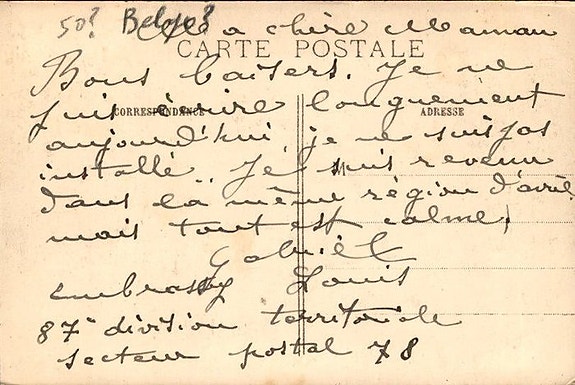 50? Belge?
Ma chère Maman
CARTE POSTALE
Bons baisers. Je ne
puis écrire longuement
CORRESPONDANCE
ADRESSE
aujourd'hui, je ne suis pas
installé. Je suis revenu
dans la même région d'avril
mais tout est calme.
Gabriel
embrassy Louis
87e division territoriale
secteur postal 78